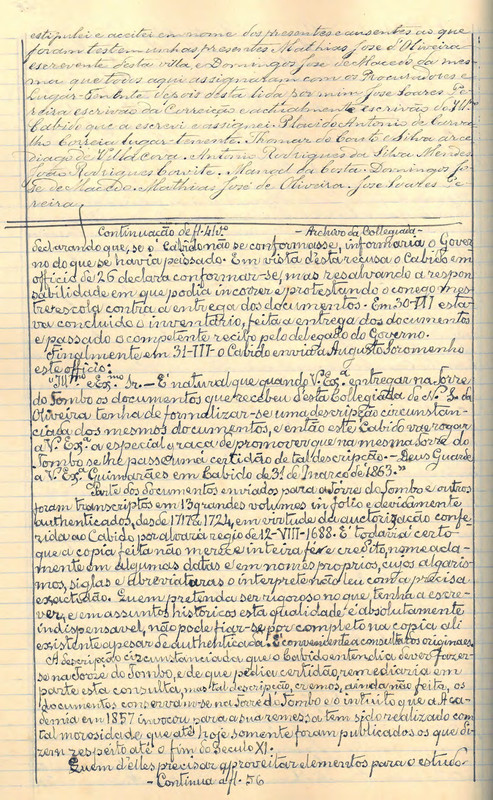 estipulei e aceitei em nome dos presentes e ausentes ao que
foram testemunhas presentes Mathias José d'Oliveira
escrevente desta villa e Domingos José de Macedo da mes-
ma que todos aqui assignaram com os Procuradores e
Lugar-tenente depois desta lida por mim José Soares Pe-
reira escrivão da Correição e actualmente escrivão do Ill.mo
Cabido que a escrevi e assignei. Placido Antonio de Carva-
lho Correia lugar-tenente. Thomaz do Couto e Silva arce-
diago de Villa Cova. Antonio Rodrigues da Silva Mendes
João Rodrigues Corvite. Manoel da Costa. Domingos Jo-
sé de Macedo. Mathias José de Oliveira. José Soares Pe-
reira.
Continuação de fl. 41 v.º - Archivo da Collegiada -
declarando que, se o Cabido não se conformasse, informaria o Gover-
no do que se havia passado. Em vista desta recusa o Cabido em
officio de 26 declara conformar-se, mas resalvando a respon-
sabilidade em que podia incorrer e protestando o conego mes-
tre escola contra a entrega dos documentos. Em 30-III esta-
va concluido o inventário, feita a entrega dos documentos
e passado o competente recibo pelo delegado do Governo.
Finalmente em 31-III o Cabido envia a Augusto Soromenho
este officio:
"Ill.mo e Ex.mo Sr. - E' natural que quando V.ª Ex.ª entregar na Torre
do Tombo os documentos que recebeu desta Collegiada de N. S. da
Oliveira tenha de formalizar-se uma descripção circunstan-
ciada dos mesmos documentos, e então este Cabido vae rogar
a V. Ex.ª a especial graça de promover que na mesma Torre do
Tombo se lhe passe uma certidão de tal descripção. - Deus Guarde
a V. Ex.ª Guimarães em Cabido de 31 de Março de 1863."
Parte dos documentos enviados para a Torre do Tombo e outros
foram transcriptos em 13 grandes volumes in folio e devidamente
authenticados, desde 1717 a 1724, em virtude da auctorização confe-
rida ao Cabido por alvará regio de 12-VIII-1688. E' todavia certo
que a copia feita não merece inteira fé e credito, nomeada-
mente em algumas datas e em nomes proprios, cujos algaris-
mos, siglas e abreviaturas o interprete não leu com a precisa
exactidão. Quem pretenda ser rigoroso no que tenha a escre-
ver, e em assuntos historicos esta qualidade é absolutamente
indispensavel, não pode fiar-se por completo na copia ali
existente apesar de authenticada. E' conveniente a consulta dos originaes.
A descripção circunstanciada que o Cabido entendia dever fazer-
se na Torre do Tombo, e de que pedia certidão, remediaria em
parte esta consulta, mas tal descripção, cremos, ainda não feita, os
documentos conservam-se na Torre do Tombo e o intuito que a Aca-
demia em 1857 invocou para a sua remessa tem sido realizado com
tal morosidade que até hoje somente foram publicados os que di-
zem respeito até o fim do Seculo XI.
Quem d'elles precisar aproveitar elementos para o estudo
- Continua a fl. 56